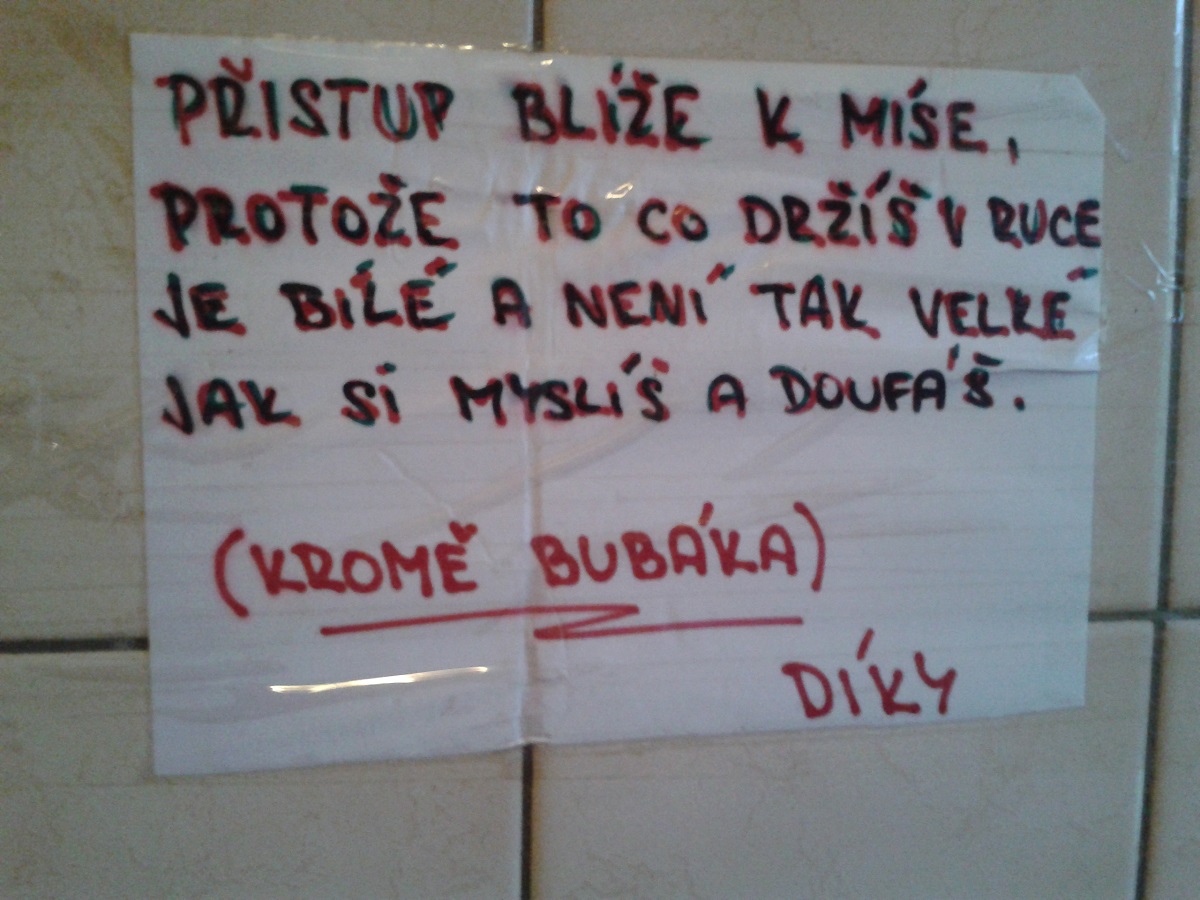 PŘISTUP BLÍŽE K MÍSE,
PROTOŽE TO CO DRŽÍŠ V RUCE
JE BÍLÉ A NENÍ TAK VELKÉ
JAK SI MYSLÍŠ A DOUFÁŠ.
(KROMĚ BUBÁKA)
DÍKY